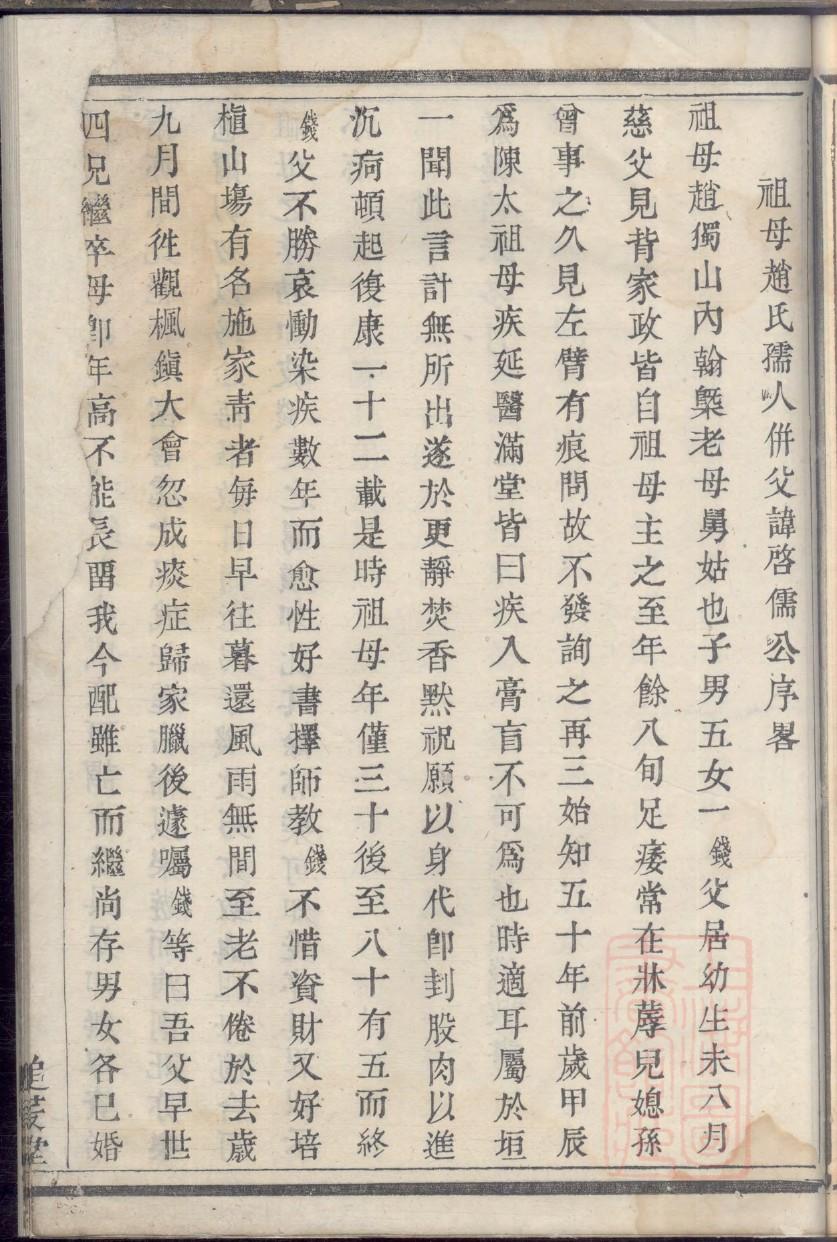 祖母趙氏孺人併父諱啓儒公序畧
祖母趙獨山內翰槩老母舅姑也子男五女一錢父居幼生未八月
慈父見背家政皆自祖母主之至年餘八旬足痿常在牀蓐兒媳孫
曾事之久見左臂有痕問故不發詢之再三始知五十年前歲甲辰
爲陳太祖母疾延醫滿堂皆曰疾入膏盲不可爲也時適耳屬於垣
一聞此言計無所出遂於更靜焚香默祝願以身代卽刲股肉以進
沉疴頓起復康一十二載是時祖母年僅三十後至八十有五而終
錢父不勝哀慟染疾數年而愈性好書擇師教錢不惜資財又好培
植山塲有名施家靑者每日早往暮還風雨無間至老不倦於去歲
九月間徃觀楓鎭大會忽成痰症歸家臘後遽囑錢等曰吾父早世
四兄繼卒母卽年高不能長畱我今配雖亡而繼尚存男女各已婚
追萲堂